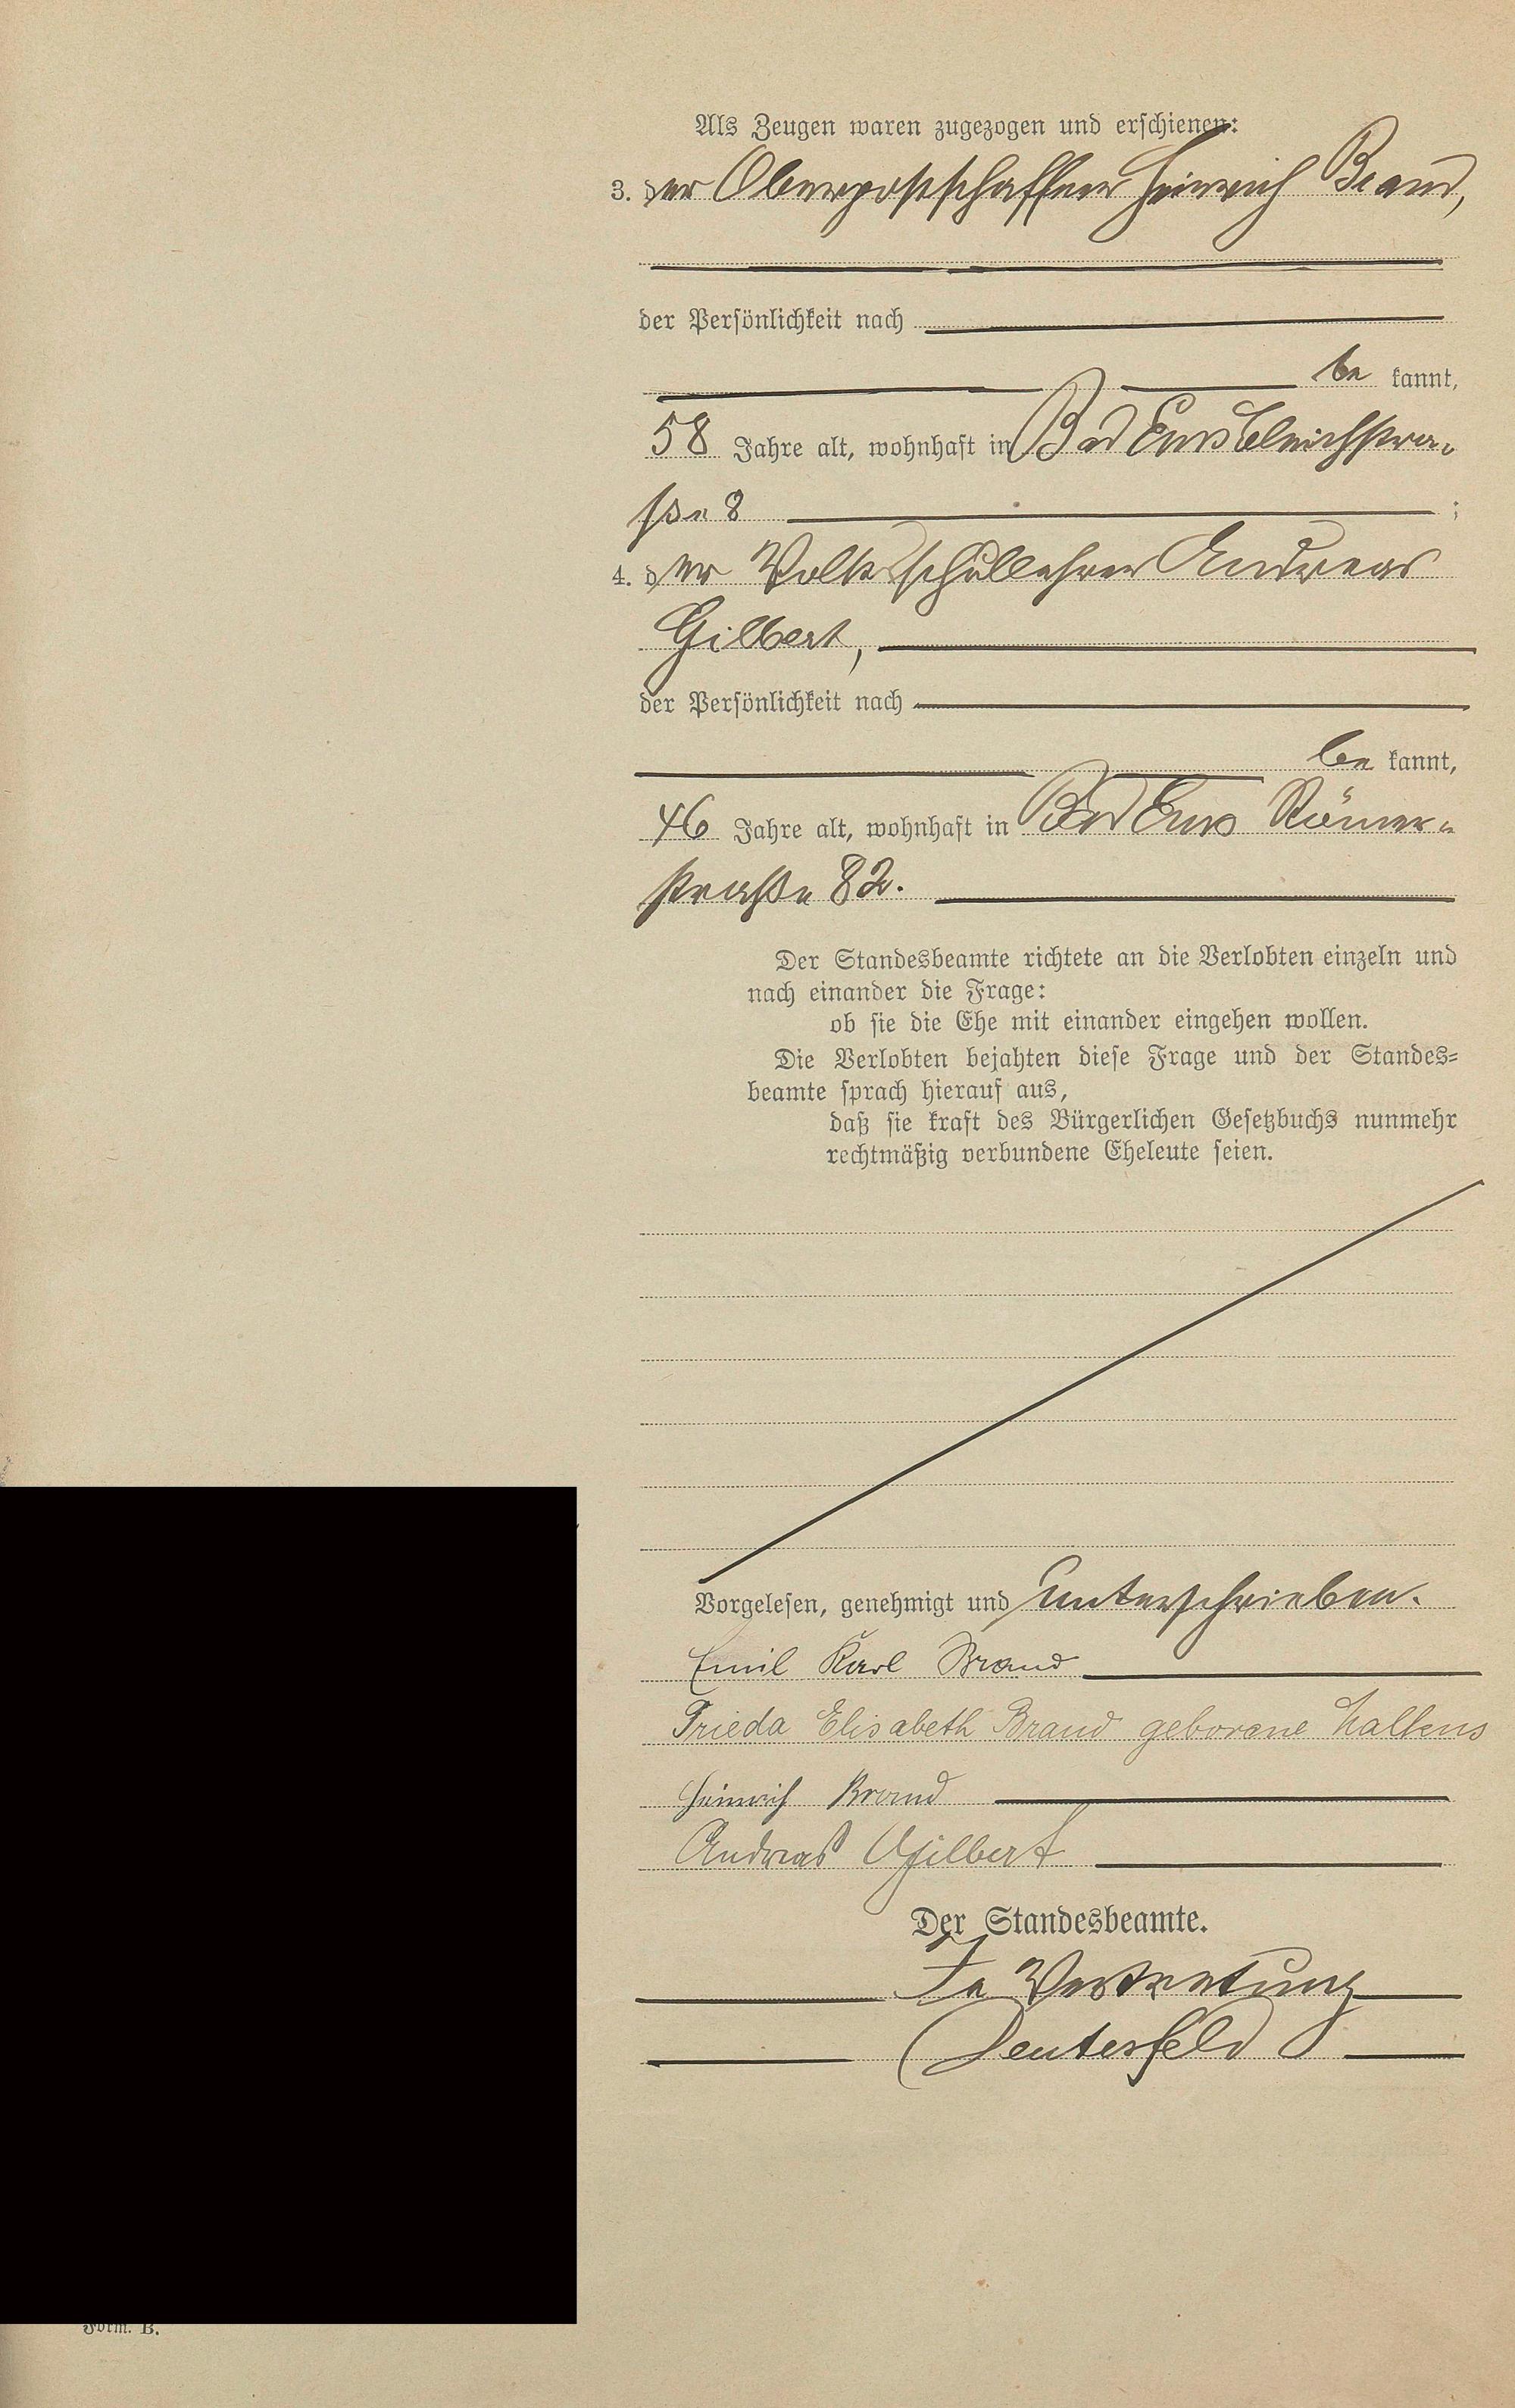 Als Zeugen waren zugezogen und erschienen:
3. der Oberpostschaffner Heinrich Brand,
der Persönlichkeit nach
be kannt,
58 Jahre alt, wohnhaft in Bad Ems Bleichstra-
ße 8 ;
4. der Volksschullehrer Andreas
Gilbert,
der Persönlichkeit nach
be kannt,
46 Jahre alt, wohnhaft in Bad Ems Römer-
straße 82.
Der Standesbeamte richtete an die Verlobten einzeln und
nach einander die Frage:
ob sie die Ehe mit einander eingehen wollen.
Die Verlobten bejahten diese Frage und der Standes-
beamte sprach hierauf aus,
daß sie kraft des Bürgerlichen Gesetzbuchs nunmehr
rechtmäßig verbundene Eheleute seien.
Vorgelesen, genehmigt und unterschrieben.
Emil Karl Brand
Frieda Elisabeth Brand geborene
Heinrich Brand
Andreas Gilbert
Der Standesbeamte.
In Vertretung
Form. B.